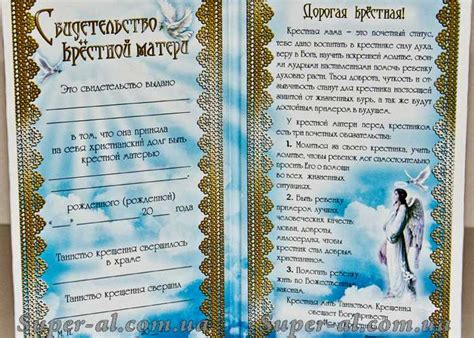 Свидетельство
крёстной матери
Это свидетельство выдано
в том, что она приняла
на себя христианский долг быть
крестной матерью
рожденного (рожденной)
20 года
Таинство крещения свершилось
в храме
Таинство крещения свершил
Дорогая крёстная!
Крестная мама - это почетный статус,
тебе дано воспитать в крестнике силу духа,
веру в Бога, научить искренней молитве, свои-
ми мудрыми наставлениями помочь ребенку
духовно расти. Твоя доброта, чуткость и от-
зывчивость станут для крестника настоящей
защитой от жизненных бурь, а так же будут
достойным примером в будущем.
У крестной матери перед крестником
есть три почетных обязательства:
1. Молиться за своего крестника, учить
молитве, чтобы ребенок мог самостоятельно
просить Его о помощи
во всех жизненных
ситуациях.
2. Быть ребенку
примером лучших
человеческих качеств:
любви, доброты,
милосердия, чтобы
крестник стал достойным
христианином.
3. Помогать ребенку
жить по Божественным
Крестная мать Таинством Крещения
Super-al.com.ua
Super-al.com.ua